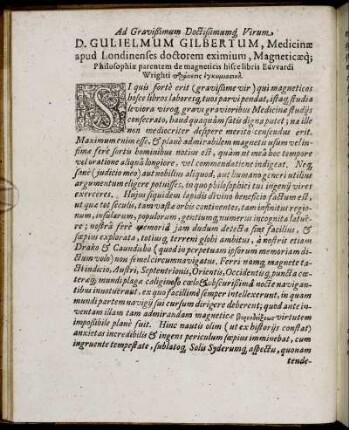 Ad Gravißimum Doctißimumq́; Virum
D. GULIELMUM GILBERTUM, Medicinæ
apud Londinenses doctorem eximium, Magneticæq́;
Philosophiæ parentem de magneticis hisce libris Edvvardi
Wrighti ἐγκωμιαστικὸ.
SI quis fortè erit (gravißime vir) qui magneticos
hosce libros laboresq́; tuos parvi pendat, istaq́; studia
leviora viro, gravioribus Medicinæ studijs
consecrato, haud quaquàm satis digna putet; na ille
non mediocriter desipere meritò censendus erit.
Maximum enim esse, & planè admirabilem magnetis usum vel in-
fimæ ferè sortis hominibus notius est, quàm ut meâ hoc tempore
vel oratione aliquâ longiore, vel commendatione indigeat. Neq́;
sanè (judicio meo) aut nobilius aliquod, aut humano generi utilius
argumentum eligere potuisses, in quo philosophici tui ingenij vires
exerceres. Hujus siquidem lapidis divino beneficio factum est,
ut quæ tot seculis, tam vastæ orbis continentes, tam infinitæ regio-
num, insularum, populorum, gentiumq́; numerus incognita latue-
re; nostrâ ferè memoriâ jam dudum detecta sint facillimè, &
sæpius explorata, totiusq́; terreni globi ambitus, à nostris etiam
Drako & Caundisho (quod in perpetuam ipsorum memoriam di-
ctum volo) non semel circumnavigatus. Ferri namq́; magnete ta-
cti indicio, Austri, Septentrionis, Orientis, Occidentisq́; puncta cæ-
teraq́; mundi plagæ caliginoso cælo & obscurißimâ nocte navigan-
tibus innotuerunt, ex quo facillimè semper intellexerunt, in quam
mundi partem navigij sui cursum dirigere deberent; quod ante in-
ventam illam tam admirandam magneticæ βορεοδείξεως virtutem
impoßibile planè fuit. Hinc nautis olim (ut ex historijs constat)
anxietas incredibilis & ingens periculum sæpius imminebat, cum
ingruente tempestate, sublatoq́; Solis Syderumq́; aspectu, quonam
tende-